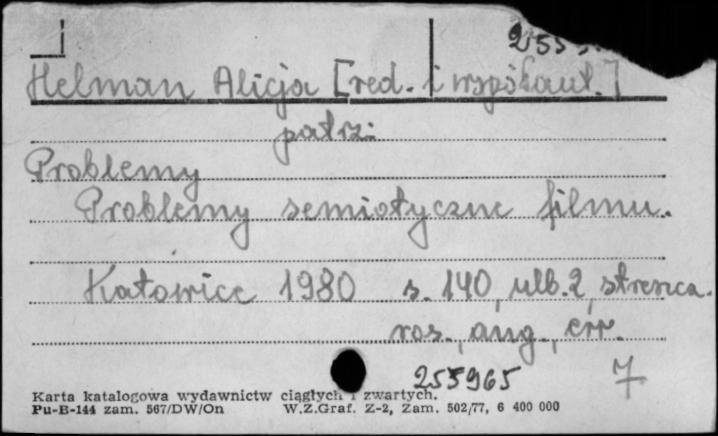 Helman Alicja [red. i współaut.]
patrz:
Problemy
Problemy semiotyczne filmu.
Katowice 1980 s. 140, nlb. 2, streszcz.
ros., ang., err.
255965 7
Karta katalogowa wydawnictw ciągłych i zwartych.
Pu-B-144 zam. 567/DW/On W.Z.Graf. Z-2, Zam. 502/77, 6 400 000